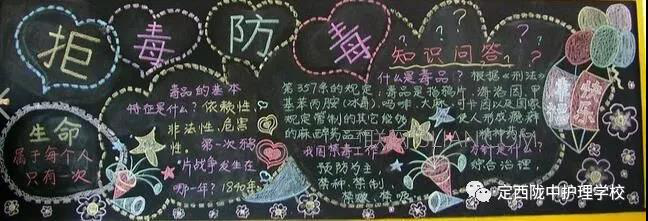 拒毒防毒
知识问答
生命
属于每个人
只有一次
毒品的基本
特征是什么?依赖性,
非法性,危害
性。第一次鸦
片战争发生在
哪一年?1840年
什么是毒品?根据《刑法》
第357条的规定,毒品是指鸦片、海洛因、甲
基苯丙胺(冰毒)、吗啡、大麻、可卡因以及国家
规定管制的其它能够使人形成瘾癖
的麻醉药品
精神药品
我国禁毒工作
方针是什么?
预防为主,
综合治理,
禁种、禁制、
禁贩、禁吸
定西陇中护理学校